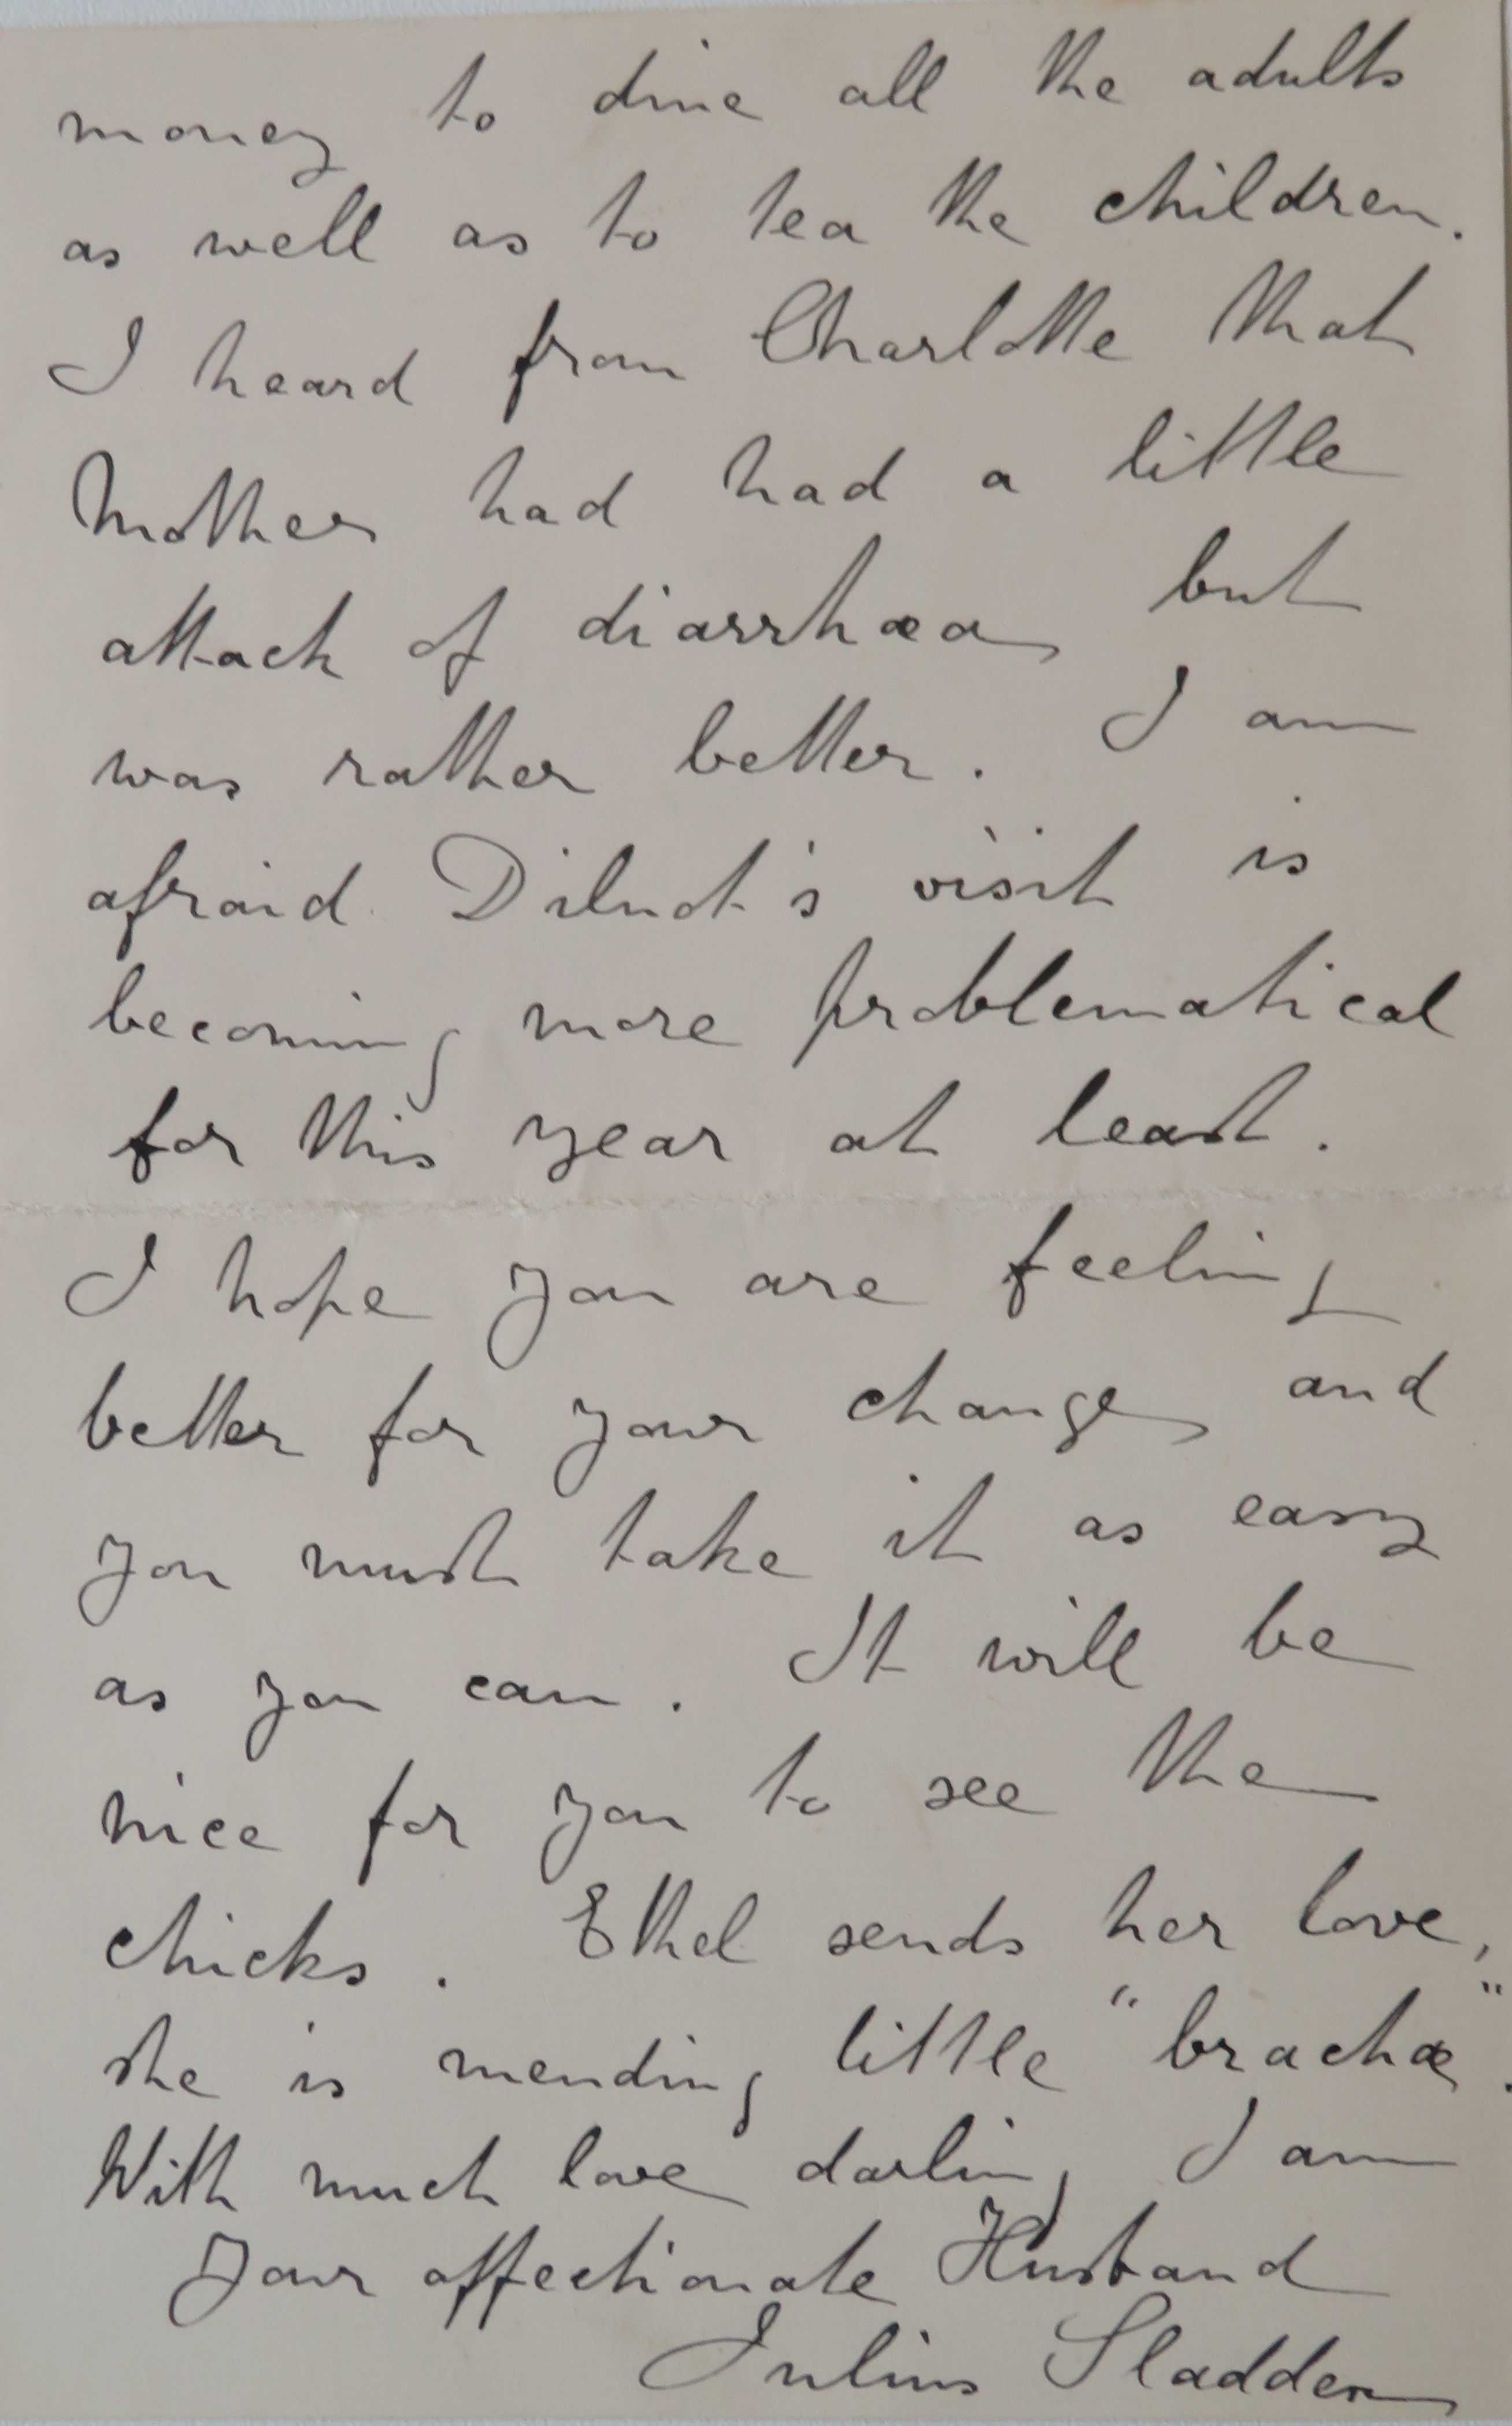 money to dine all the adults
as well as to tea the children.
I heard from Charlotte that
Mother had had a little
attack of diarrhœa but
was rather better. I am
afraid Dilnot's visit is
becoming more problematical
for this year at least.
I hope you are feeling
better for your change and
you must take it as easy
as you can. It will be
nice for you to see the
chicks. Ethel sends her love,
she is mending little "brachæ".
With much love darling I am
Your affectionate Husband
Julius Sladden